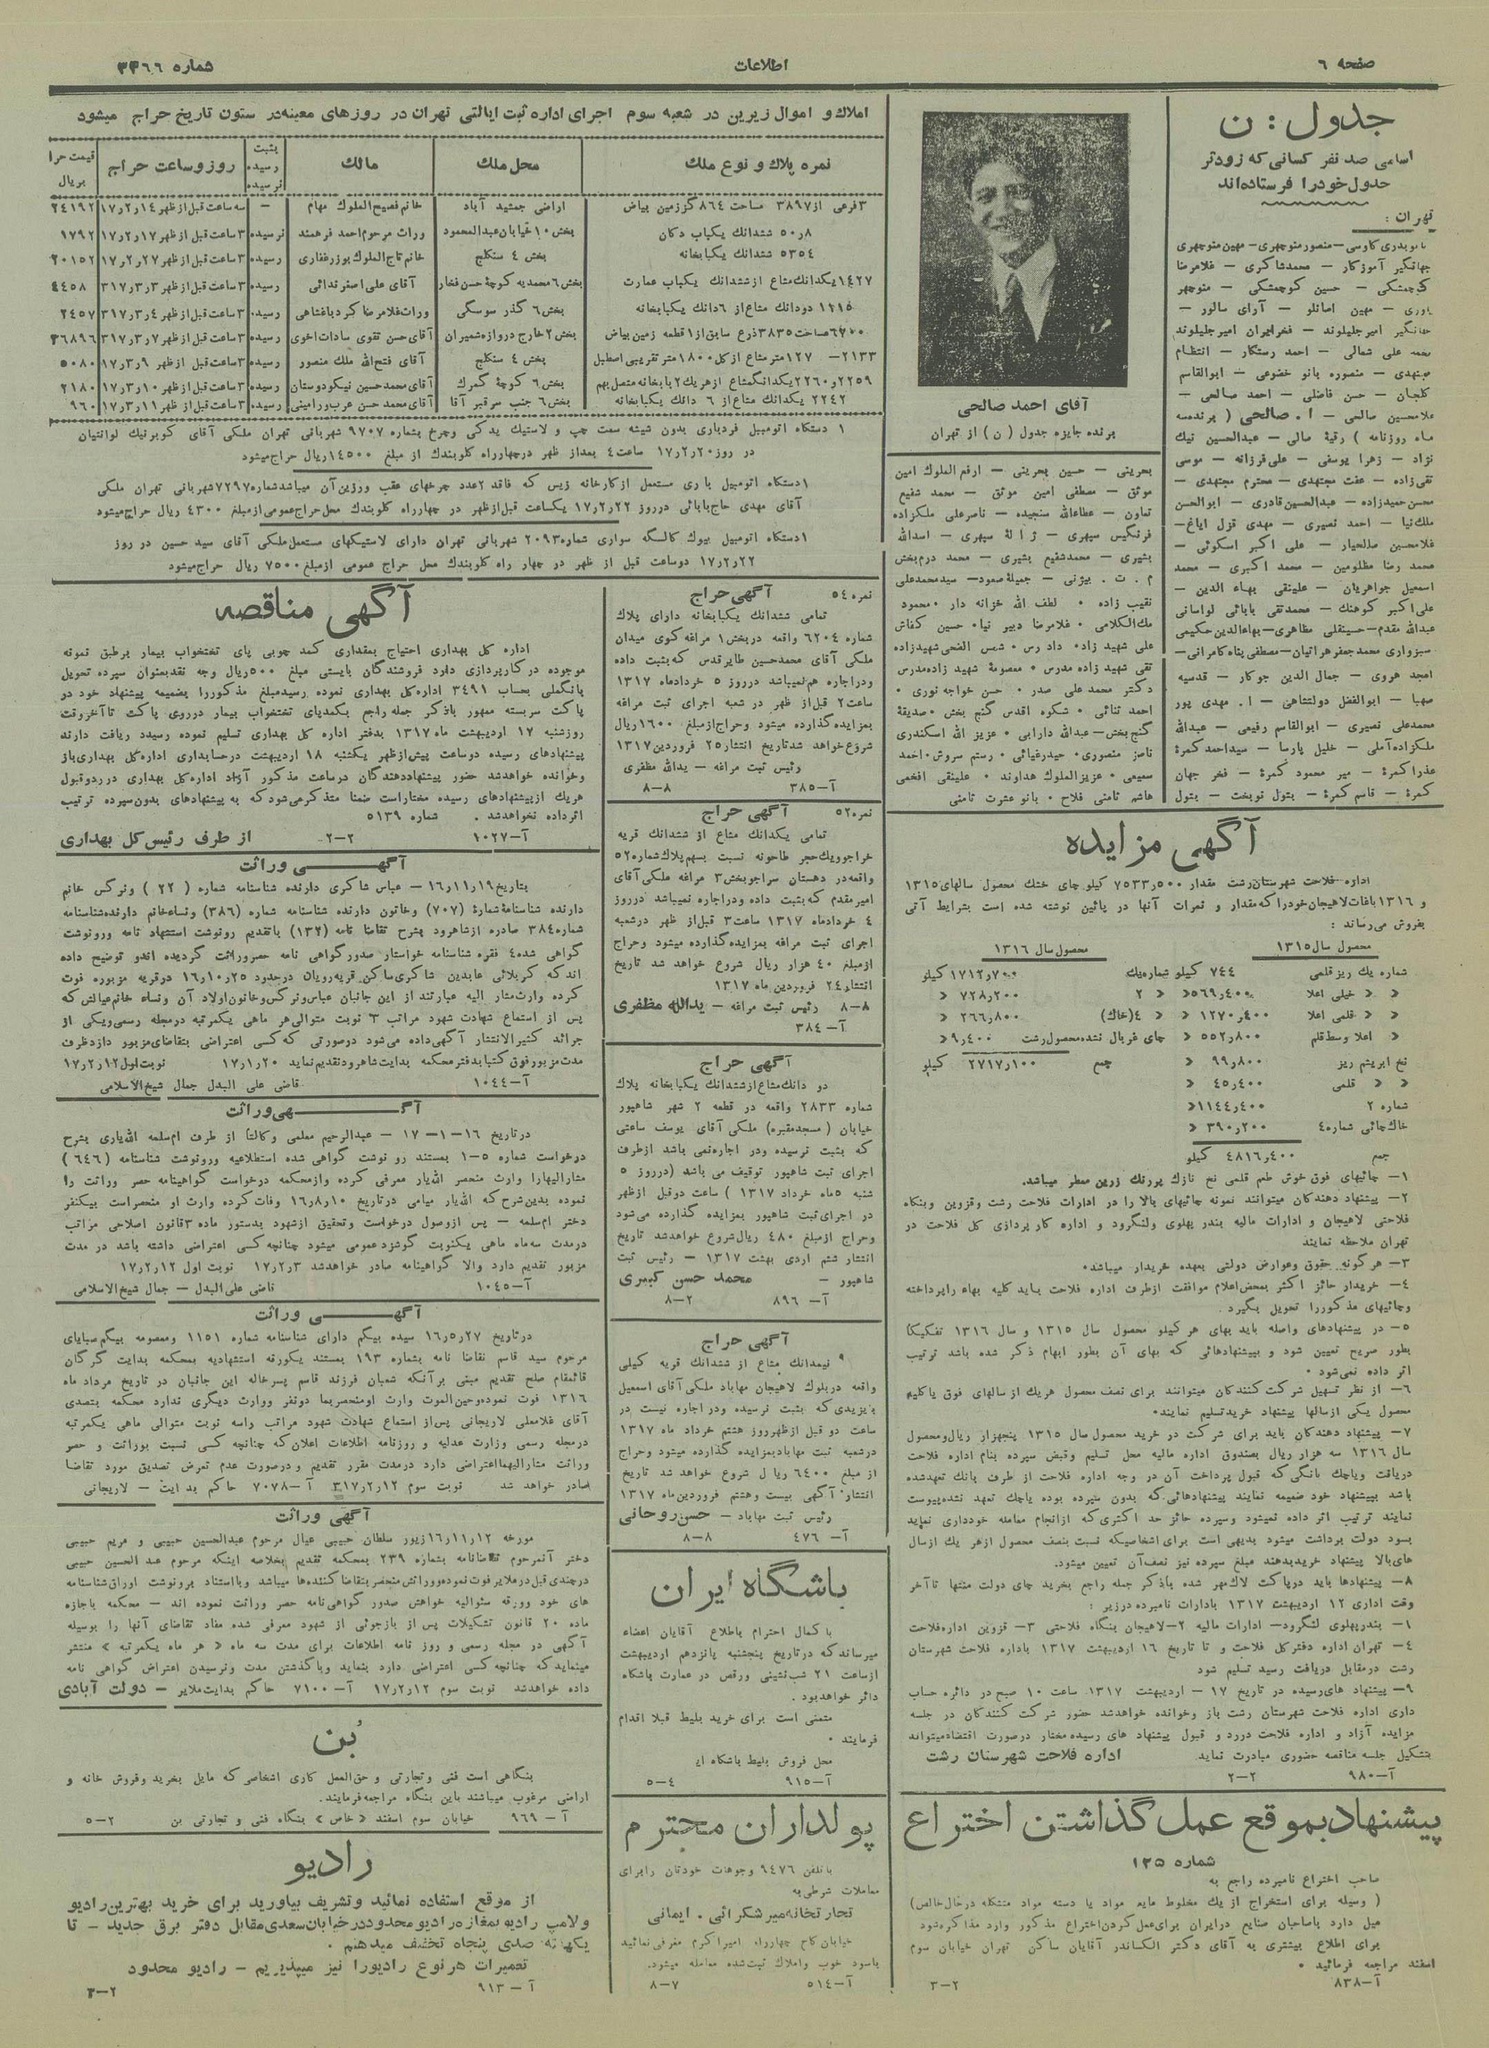 صفحه ۶
اطلاعات
شماره ۳۳۶۶
جدول : ن
اسامی صد نفر کسانی که زودتر
جدول خودرا فرستاده‌اند
تهران :
جهانگیر آموزکار — محمدشاکری — غلامرضا
کوچمشکی — حسین کوچمشکی — منوچهر
یاوری — مهین اصانلو — آرای سالور —
جهانگیر امیرجلیلوند — فخرایران امیرجلیلوند
محمد علی شمالی — احمد رستگار — انتظام
مجتهدی — منصوره بانو خضوعی — ابوالقاسم
گلچان — حسن فاضلی — احمد صالحی —
غلامحسین صالحی — ا. صالحی ( برنده‌سه
ماه روزنامه ) رقیهٔ مالی — عبدالحسین نیک
نژاد — زهرا یوسفی — علی فرزانه — موسی
تقی‌زاده — عفت مجتهدی — محترم مجتهدی —
محسن حمیدزاده — عبدالحسین قادری — ابوالحسن
ملک‌نیا — احمد نصیری — مهدی قزل ایاغ—
غلامحسین صالحیار — علی اکبر اسکوئی —
محمد رضا مظلومین — محمد اکبری — محمد
اسمعیل جواهریان — علینقی بهاء الدین —
علی‌اکبر کوهنگ — محمدتقی بابائی لواسانی
عبدالله مقدم— حسینقلی مظاهری— بهاءالدین حکیمی
سبزواری محمدجعفر هراتیان— مصطفی پناه کامرانی—
امجد هروی — جمال الدین جوکار — قدسیه
صهبا — ابوالفضل دولتشاهی — ا. مهدی پور
محمدعلی نصیری — ابوالقاسم رفیعی — عبدالله
ملکزاده‌آملی — خلیل پارسا — سیداحمد کمرهٔ
عذرا کمرهٔ — میر محمود کمرهٔ — فخر جهان
کمرهٔ — قاسم کمرهٔ — بتول نوبخت — بتول
آقای احمد صالحی
برنده جایزه جدول ( ن ) از تهران
بحرینی — حسین بحرینی — ارفع الملوک امین
موثق — مصطفی امین موثق — محمد شفیع
تعاون — عطاءالله سنجیده — ناصرعلی ملکزاده
فرنگیس سپهری — ژالهٔ سپهری — اسدالله
بشیری — محمدشفیع بشیری — محمد درم‌بخش
م . ت . بیژنی — جمیلهٔ صعود— سیدمحمدعلی
نقیب زاده . لطف الله خزانه دار . محمود
ملک‌الکلامی . غلامرضا دبیر نیا. حسین کفاش
علی شهید زاد. داد رس . شمس الضحی‌شهیدزاده
تقی شهید زاده مدرس . معصومهٔ شهید زاده‌مدرس
دکتر محمدعلی صدر . حسن خواجه نوری .
احمد ثنائی . شکوه اقدس گنج بخش . صدیقهٔ
گنج‌بخش— عبدالله دارابی . عزیز الله اسکندری
ناصر منصوری . حیدرغیائی . رستم سروش. احمد
سمیعی . عزیزالملوک هداوند . علینقی افخمی
هاشم ثامنی فلاح . بانو عشرت ثامنی
املاک و اموال زیرین در شعبه سوم اجرای اداره ثبت ایالتی تهران در روزهای معینه‌در ستون تاریخ حراج میشود
نمره پلاک و نوع ملک | محل ملک | مالک | بثبت رسیده نرسیده | روز و ساعت حراج | قیمت حرا بریال
۳ فرعی از ۳۸۹۷ مساحت ۸۶۴ گز زمین بیاض | اراضی جمشید آباد | خانم فصیح الملوک مهام | — | سه ساعت قبل‌از ظهر ۱۴ر۲ر۱۷ | ۲۴۱۹۲
۵۰٫۸ ششدانک یکباب دکان | بخش ۱۰ خیابان‌عبدالمحمود | وراث مرحوم احمد فرهمند | نرسیده | ۳ ساعت قبل‌از ظهر ۱۷ر۲ر۱۷ | ۱۷۹۲
۵۳۵۴ ششدانک یکبابخانه | بخش ۴ سنگلج | خانم تاج‌الملوک بوزرغفاری | رسیده | ۳ ساعت قبل‌از ظهر ۲۷ر۲ر۱۷ | ۲۰۱۵۲
۱۴۲۷ یکدانک‌مشاع از ششدانک یکباب عمارت | بخش ۶ محمدیه کوچهٔ حسن‌فخار | آقای علی اصغر ندائی | رسیده | ۳ ساعت قبل‌از ظهر ۳ر۳ر۳۱۷ | ۴۴۵۸
دودانک مشاع‌از ۶ دانک یکبابخانه | بخش ۶ گذر سوسکی | وراث‌غلامرضا کردبافشاهی | رسیده | ۳ ساعت قبل‌از ظهر ۴ر۳ر۳۱۷ | ۲۴۵۷
۳۸۳۵ ذرع سابق‌از ۱ قطعه زمین بیاض | بخش ۲ خارج دروازه‌شمیران | آقای حسن تقوی سادات اخوی | رسیده | ۳ ساعت قبل‌از ظهر ۷ر۳ر۳۱۷ | ۳۶۸۹۶
۲۱۳۳— ۱۲۷ مترمشاع ازکل ۱۸۰۰ متر تقریبی اصطبل | بخش ۴ سنگلج | آقای فتح‌الله ملک منصور | رسیده | ۳ ساعت قبل‌از ظهر ۹ر۳ر۱۷ | ۵۰۸۰
۲۲۵۹ و ۲۲۶۰ یکدانگ‌مشاع ازهریک ۲ بابخانه متصل‌بهم | بخش ۶ کوچهٔ گمرک | آقای محمدحسین نیکودوستان | رسیده | ۳ ساعت قبل‌از ظهر ۱۰ر۳ر۱۷ | ۲۱۸۰
۲۲۴۲ یکدانک مشاع‌از ۶ دانک یکبابخانه | بخش ۶ جنب سرقبر آقا | آقای محمدحسن عرب‌ورامینی | رسیده | ۳ ساعت قبل‌از ظهر ۱۱ر۳ر۱۷ | ۹۶۰
۱ دستکاه اتومبیل فردباری بدون شیشه سمت چپ و لاستیک یدکی وچرخ بشماره ۹۷۰۷ شهربانی تهران ملکی آقای کوبرنیک لوانتیان
در روز ۲۰ر۲ر۱۷ ساعت ۴ بعداز ظهر درچهارراه کلوبندک از مبلغ ۱۴۵۰۰ ریال حراج‌میشود
۱ دستکاه اتومبیل باری مستعمل ازکارخانه زیس که فاقد ۲ عدد چرخهای عقب ورزین‌آن میباشد شماره ۷۲۹۷ شهربانی تهران ملکی
آقای مهدی حاج‌بابائی درروز ۲۲ر۲ر۱۷ یکساعت قبل‌از ظهر در چهارراه کلوبندک محل حراج‌عمومی ازمبلغ ۴۳۰۰ ریال حراج‌میشود
۱ دستکاه اتومبیل بیوک کالسگه سواری شماره ۲۰۹۳ شهربانی تهران دارای لاستیکهای مستعمل‌ملکی آقای سید حسین در روز
۲۲ر۲ر۱۷ دوساعت قبل از ظهر در چهار راه کلوبندک محل حراج عمومی ازمبلغ ۷۵۰۰ ریال حراج‌میشود
آگهی مناقصه
اداره کل بهداری احتیاج بمقداری کمد چوبی پای تختخواب بیمار برطبق نمونه
موجوده درکارپردازی دارد فروشندگان بایستی مبلغ ۵۰۰ ریال وجه نقدبعنوان سپرده تحویل
بانگملی بحساب ۳۴۹۱ اداره‌کل بهداری نموده رسیدمبلغ مذکوررا بضمیمه پیشنهاد خود دو
پاکت سربسته ممهور باذکر جمله راجع بکمدپای تختخواب بیمار درروی پاکت تاآخروقت
روزشنبه ۱۷ اردیبهشت ماه ۱۳۱۷ بدفتر اداره کل بهداری تسلیم نموده رسیدد ریافت دارند
پیشنهادهای رسیده دوساعت پیش‌ازظهر یکشنبه ۱۸ اردیبهشت درحسابداری اداره‌کل بهداری‌باز
وخوانده خواهدشد حضور پیشنهاددهندگان درساعت مذکور آزاد اداره‌کل بهداری درردوقبول
هریک ازپیشنهادهای رسیده مختاراست ضمنا متذکرمی‌شودکه به پیشنهادهای بدون‌سپرده ترتیب
اثرداده نخواهدشد . شماره ۵۱۳۹
آ—۱۰۲۷ ۲—۲ از طرف رئیس کل بهداری
آگهی وراثت
بتاریخ ۱۹ر۱۱ر۱۶ — عباس شاکری دارنده شناسنامه شماره ( ۲۲ ) ونرگس خانم
دارنده شناسنامهٔ شمارهٔ (۷۰۷) وخاتون دارنده شناسنامه شماره (۳۸۶) ونساءخانم دارنده‌شناسنامه
شماره ۳۸۴ صادره ازشاهرود بشرح تقاضا نامه (۱۳۲) باتقدیم رونوشت استشهاد نامه ورونوشت
گواهی شده ۴ فقره شناسنامه خواستار صدورگواهی نامه حصروراثت گردیده اندو توضیح داده
اندکه کربلائی عابدین شاکری‌ساکن قریه‌رویان درحدود ۲۵ر۱۰ر۱۶ درقریه مزبوره فوت
کرده وراث‌مشار الیه عبارتند از این جانبان عباس‌ونرگس‌وخاتون‌اولاد آن ونساء خانم‌عیالش که
پس از استماع شهادت شهود مراتب ۳ نوبت متوالی‌هر ماهی یکمرتبه درمجله رسمی‌ویکی از
جرائد کثیرالانتشار آگهی‌داده می‌شود درصورتی که‌کسی اعتراضی بتقاضای‌مزبور داردظرف
مدت‌مزبورفوق کتبا بدفترمحکمه بدایت‌شاهرودتقدیم‌نماید ۲۰ر۱ر۱۷ نوبت‌اول ۱۲ر۲ر۱۷
آ—۱۰۴۴ قاضی علی البدل جمال شیخ‌الاسلامی
آگهی وراثت
درتاریخ ۱۶—۱—۱۷ — عبدالرحیم معلمی وکالتا از طرف ام‌سلمه الله‌یاری بشرح
درخواست شماره ۵—۱ بمستند رو نوشت گواهی شده استطلاعیه ورونوشت شناسنامه (۶۴۶)
مشارالیهارا وارث منحصر الله‌یار معرفی کرده وازمحکمه درخواست گواهینامه حصر وراثت را
نموده بدین‌شرح‌که الله‌یار میامی درتاریخ ۱۰ر۸ر۱۶ وفات‌کرده وارث او منحصراست بیکنفر
دختر ام‌سلمه — پس ازوصول درخواست وتحقیق ازشهود بدستور ماده ۳ قانون اصلاحی مراتب
درمدت سه‌ماه ماهی یکنوبت گوشزدعمومی میشود چنانچه‌کسی اعتراضی داشته باشد در مدت
مزبور تقدیم دارد والا گواهینامه صادر خواهدشد ۳ر۲ر۱۷ نوبت اول ۱۲ر۲ر۱۷
آ—۱۰۴۵ قاضی علی‌البدل — جمال شیخ‌الاسلامی
آگهی وراثت
درتاریخ ۲۷ر۵ر۱۶ سیده بیگم دارای شناسنامه شماره ۱۱۵۱ ومعصومه بیگم‌صبایای
مرحوم سید قاسم تقاضا نامه بشماره ۱۹۳ بمستند یکورقه استشهادیه بمحکمه بدایت گرگان
قائمقام صلح تقدیم مبنی برآنکه شعبان فرزند قاسم پسرخاله این جانبان در تاریخ مرداد ماه
۱۳۱۶ فوت نموده‌وحین‌الموت وارث اومنحصربما دونفر ووارث دیگری ندارد محکمه بتصدی
آقای غلامعلی لاریجانی پس‌از استماع شهادت شهود مراتب راسه نوبت متوالی ماهی یکمرتبه
درمجله رسمی وزارت عدلیه و روزنامه اطلاعات اعلان‌که چنانچه کسی نسبت بوراثت و حصر
وراثت مشارالیهمااعتراضی دارد درمدت مقرر تقدیم ودرصورت عدم تعرض تصدیق مورد تقاضا
صادر خواهد شد نوبت سوم ۱۲ر۲ر۳۱۷ آ—۷۰۷۸ حاکم بدایت — لاریجانی
آگهی وراثت
مورخه ۱۲ر۱۱ر۱۶ زیور سلطان حبیبی عیال مرحوم عبدالحسین حبیبی و مریم حبیبی
دختر آنمرحوم تقاضانامه بشماره ۲۳۹ بمحکمه تقدیم بخلاصه اینکه مرحوم عبد الحسین حبیبی
درچندی‌قبل درملایر فوت نموده‌ووراثش منحصر بتقاضاکننده‌ها میباشد وبااستناد برونوشت اوراق‌شناسنامه
های خود وورقه سئوالیه خواهش صدور گواهی‌نامه حصر وراثت نموده اند — محکمه باجازه
ماده ۲۰ قانون تشکیلات پس از بازجوئی از شهود معرفی شده مفاد تقاضای آنها را بوسیله
آگهی در مجله رسمی و روز نامه اطلاعات برای مدت سه ماه « هر ماه یکمرتبه » منتشر
مینمایدکه چنانچه‌کسی اعتراضی دارد بنماید وباگذشتن مدت ونرسیدن اعتراض گواهی نامه
داده خواهدشد نوبت سوم ۱۲ر۲ر۱۷ آ—۷۱۰۰ حاکم بدایت‌ملایر — دولت آبادی
بُن
بنگاهی است فنی وتجارتی و حق‌العمل کاری اشخاصی که مایل بخرید وفروش خانه و
اراضی مرغوب میباشند باین بنگاه مراجعه‌فرمایند.
آ— ۹۶۹ خیابان سوم اسفند « خاص » بنگاه فنی و تجارتی بن ۲—۵
رادیو
از موقع استفاده نمائید وتشریف بیاورید برای خرید بهترین‌رادیو
ولامپ رادیو بمغازه‌رادیومحدوددرخیابان‌سعدی‌مقابل دفتر برق جدید — تا
صدی پنجاه تخفیف میدهم .
تعمیرات هرنوع رادیورا نیز میپذیریم — رادیو محدود
آ— ۹۱۳ ۲—۳
نمره ۵۴ آگهی حراج
تمامی ششدانک یکبابخانه دارای پلاک
شماره ۶۲۰۴ واقعه دربخش ۱ مراغه کوی میدان
ملکی آقای محمدحسین طایرقدس که بثبت داده
ودراجاره هم‌نمیباشد درروز ۵ خردادماه ۱۳۱۷
ساعت ۲ قبل‌از ظهر در شعبه اجرای ثبت مراغه
بمزایده‌گذارده میشود وحراج‌ازمبلغ ۱۶۰۰ ریال
شروع خواهد شدتاریخ انتشار ۲۵ فروردین ۱۳۱۷
رئیس ثبت مراغه — یدالله مظفری
آ—۳۸۵ ۸—۸
نمره ۵۲ آگهی حراج
تمامی یکدانک مشاع از ششدانک قریه
خراجوویک‌حجر طاحونه نسبت بسهم‌پلاک‌شماره ۵۲
واقعه‌در دهستان سراجو بخش ۳ مراغه ملکی‌آقای
امیرمقدم که‌بثبت داده ودراجاره نمیباشد درروز
۴ خرداد ماه ۱۳۱۷ ساعت ۳ قبل‌از ظهر درشعبه
اجرای ثبت مراغه بمزایده‌گذارده میشود وحراج
ازمبلغ ۴۰ هزار ریال شروع خواهد شد تاریخ
انتشار ۲۴ فروردین ماه ۱۳۱۷
۸—۸ رئیس ثبت مراغه — یدالله مظفری
آ— ۳۸۴
آگهی حراج
دو دانک‌مشاع‌ازششدانک یکبابخانه پلاک
شماره ۲۸۳۳ واقعه در قطعه ۲ شهر شاهپور
خیابان ( مسجدمقبره) ملکی آقای یوسف ساعتی
که بثبت نرسیده ودر اجاره‌نمی باشد ازطرف
اجرای ثبت شاهپور توقیف می باشد (درروز ۵
شنبه ۵ ماه خرداد ۱۳۱۷ ) ساعت دوقبل ازظهر
در اجرای‌ثبت شاهپور بمزایده گذارده می‌شود
وحراج ازمبلغ ۴۸۰ ریال‌شروع خواهدشد تاریخ
انتشار ششم اردی بهشت ۱۳۱۷ — رئیس ثبت
شاهپور — محمد حسن کبیری
آ— ۸۹۶ ۲—۸
آگهی حراج
نیمدانک مشاع از ششدانک قریه کیلی
واقعه دربلوک لاهیجان مهاباد ملکی‌آقای اسمعیل
بایزیدی‌که بثبت نرسیده ودر اجاره نیست در
ساعت دو قبل ازظهرروز هشتم خرداد ماه ۱۳۱۷
درشعبه ثبت مهابادبمزایده گذارده میشود وحراج
از مبلغ ۶۴۰۰ ریال شروع خواهد شد تاریخ
انتشار آگهی بیست وهشتم فروردین‌ماه ۱۳۱۷
رئیس ثبت مهاباد — حسن روحانی
آ— ۴۷۶ ۸—۸
باشگاه ایران
با کمال احترام باطلاع آقایان اعضاء
میرساندکه درتاریخ پنجشنبه پانزدهم اردیبهشت
ازساعت ۲۱ شب‌نشینی ورقص در عمارت باشگاه
دائر خواهدبود .
متمنی است برای خرید بلیط قبلا اقدام
فرمایند .
محل فروش بلیط باشگاه ایـ
آ—۹۱۵ ۴—۵
پولداران محترم
باتلفن ۹۴۷۶ وجوهات خودتان رابرای
معاملات شرطی‌به
تجارتخانه‌میرشکرائی . ایمانی
خیابان‌کاخ چهارراه امیراکرم معرفی‌نمائید
باسود خوب واملاک ثبت‌شده معامله میشود.
آ—۵۱۴ ۷—۸
آگهی مزایده
اداره فلاحت شهرستان‌رشت مقدار ۵۰۰ر۷۵۳۳ کیلو چای خشک محصول سالهای ۱۳۱۵
و ۱۳۱۶ باغات‌لاهیجان‌خودراکه‌مقدار و نمرات آنها در پائین نوشته شده است بشرایط آتی
بفروش می‌رساند :
محصول سال ۱۳۱۵ محصول سال ۱۳۱۶
شماره یک ریز قلمی ۷۴۴ کیلو شماره‌یک ۷۰۰ر۱۷۱۲ کیلو
» » خیلی اعلا ۴۰۰ر۵۶۹ » » ۲ ۲۰۰ر۷۲۸ »
» » قلمی اعلا ۴۰۰ر۱۲۷۰ » » ۴(خاک) ۸۰۰ر۲۶۶ »
» اعلا وسط‌قلم ۸۰۰ر۵۵۲ » چای غربال نشده‌محصول‌رشت ۴۰۰ر۹ »
نخ ابریشم ریز ۸۰۰ر۹۹ » جمع ۱۰۰ر۲۷۱۷ کیلو
» » قلمی ۴۰۰ر۴۵ »
شماره ۲ ۴۰۰ر۱۱۴۴ »
خاک‌چائی شماره ۴ ۲۰۰ر۳۹۰ »
جمع ۴۰۰ر۴۸۱۶ کیلو
۱— چائیهای فوق خوش طعم قلمی نخ نازک پررنک زرین معطر میباشد.
۲— پیشنهاد دهندگان میتوانند نمونه چائیهای بالا را در ادارات فلاحت رشت وقزوین وبنگاه
فلاحتی لاهیجان و ادارات مالیه بندر پهلوی ولنگرود و اداره کارپردازی کل فلاحت در
تهران ملاحظه نمایند
۳— هرگونه حقوق وعوارض دولتی بعهده خریدار میباشد.
۴— خریدار حائز اکثر بمحض‌اعلام موافقت ازطرف اداره فلاحت باید کلیه بهاء راپرداخته
وچائیهای مذکوررا تحویل بگیرد .
۵— در پیشنهادهای واصله باید بهای هرکیلو محصول سال ۱۳۱۵ و سال ۱۳۱۶ تفکیکا
بطور صریح تعیین شود و بپیشنهادهائی که بهای آن بطور ابهام ذکر شده باشد ترتیب
اثر داده نمی‌شود .
۶— از نظر تسهیل شرکت‌کنندگان میتوانند برای نصف محصول هریک ازسالهای فوق یاکلیه
محصول یکی ازسالها پیشنهاد خریدتسلیم نمایند.
۷— پیشنهاد دهندگان باید برای شرکت در خرید محصول‌سال ۱۳۱۵ پنجهزار ریال‌ومحصول
سال ۱۳۱۶ سه هزار ریال بصندوق اداره مالیه محل تسلیم وقبض سپرده بنام اداره فلاحت
دریافت ویاچک بانگی‌که قبول پرداخت آن در وجه اداره فلاحت از طرف بانک تعهدشده
باشد بپیشنهاد خود ضمیمه نمایند پیشنهادهائی‌که بدون سپرده بوده یاچک تعهد نشده‌پیوست
نمایند ترتیب اثر داده نمیشود وسپرده حائز حد اکثری‌که ازانجام معامله خودداری نماید
بسود دولت برداشت میشود بدیهی است برای اشخاصیکه نسبت بنصف محصول ازهر یک ازسال
های‌بالا پیشنهاد خریدبدهند مبلغ سپرده نیز نصف‌آن تعیین میشود.
۸— پیشنهادها باید درپاکت لاک‌مهر شده باذکر جمله راجع بخرید چای دولت منتها تاآخر
وقت اداری ۱۲ اردیبهشت ۱۳۱۷ بادارات نامبرده درزیر :
۱— بندرپهلوی لنگرود— ادارات مالیه ۲— لاهیجان بنگاه فلاحتی ۳— قزوین اداره‌فلاحت
۴— تهران اداره دفترکل فلاحت و تا تاریخ ۱۶ اردیبهشت ۱۳۱۷ باداره فلاحت شهرستان
رشت درمقابل دریافت رسید تسلیم شود
۹— پیشنهاد های‌رسیده در تاریخ ۱۷ — اردیبهشت ۱۳۱۷ ساعت ۱۰ صبح در دائره حساب
داری اداره فلاحت شهرستان رشت باز وخوانده خواهدشد حضور شرکت کنندگان در جلسه
مزایده آزاد و اداره فلاحت دررد و قبول پیشنهاد های رسیده مختار درصورت اقتضاءمیتواند
بتشکیل جلسه مناقصه حضوری مبادرت نماید. اداره فلاحت شهرستان رشت
آ—۹۸۰ ۲—۲
پیشنهاد بموقع عمل گذاشتن اختراع
شماره ۱۲۵
صاحب اختراع نامبرده راجع به
( وسیله برای استخراج ازیک مخلوط مایع مواد یا دسته مواد متشکله درحال‌خالص)
میل دارد باصاحبان صنایع درایران برای‌عمل‌کردن‌اختراع مذکور وارد مذاکره‌شود
برای اطلاع بیشتری به آقای دکتر الکساندر آقایان ساکن تهران خیابان سوم
اسفند مراجعه فرمائید .
آ—۸۳۸ ۲—۳